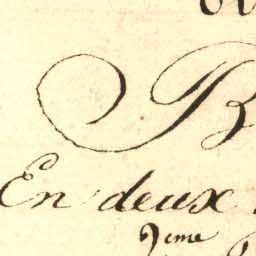 B
En deux
9eme